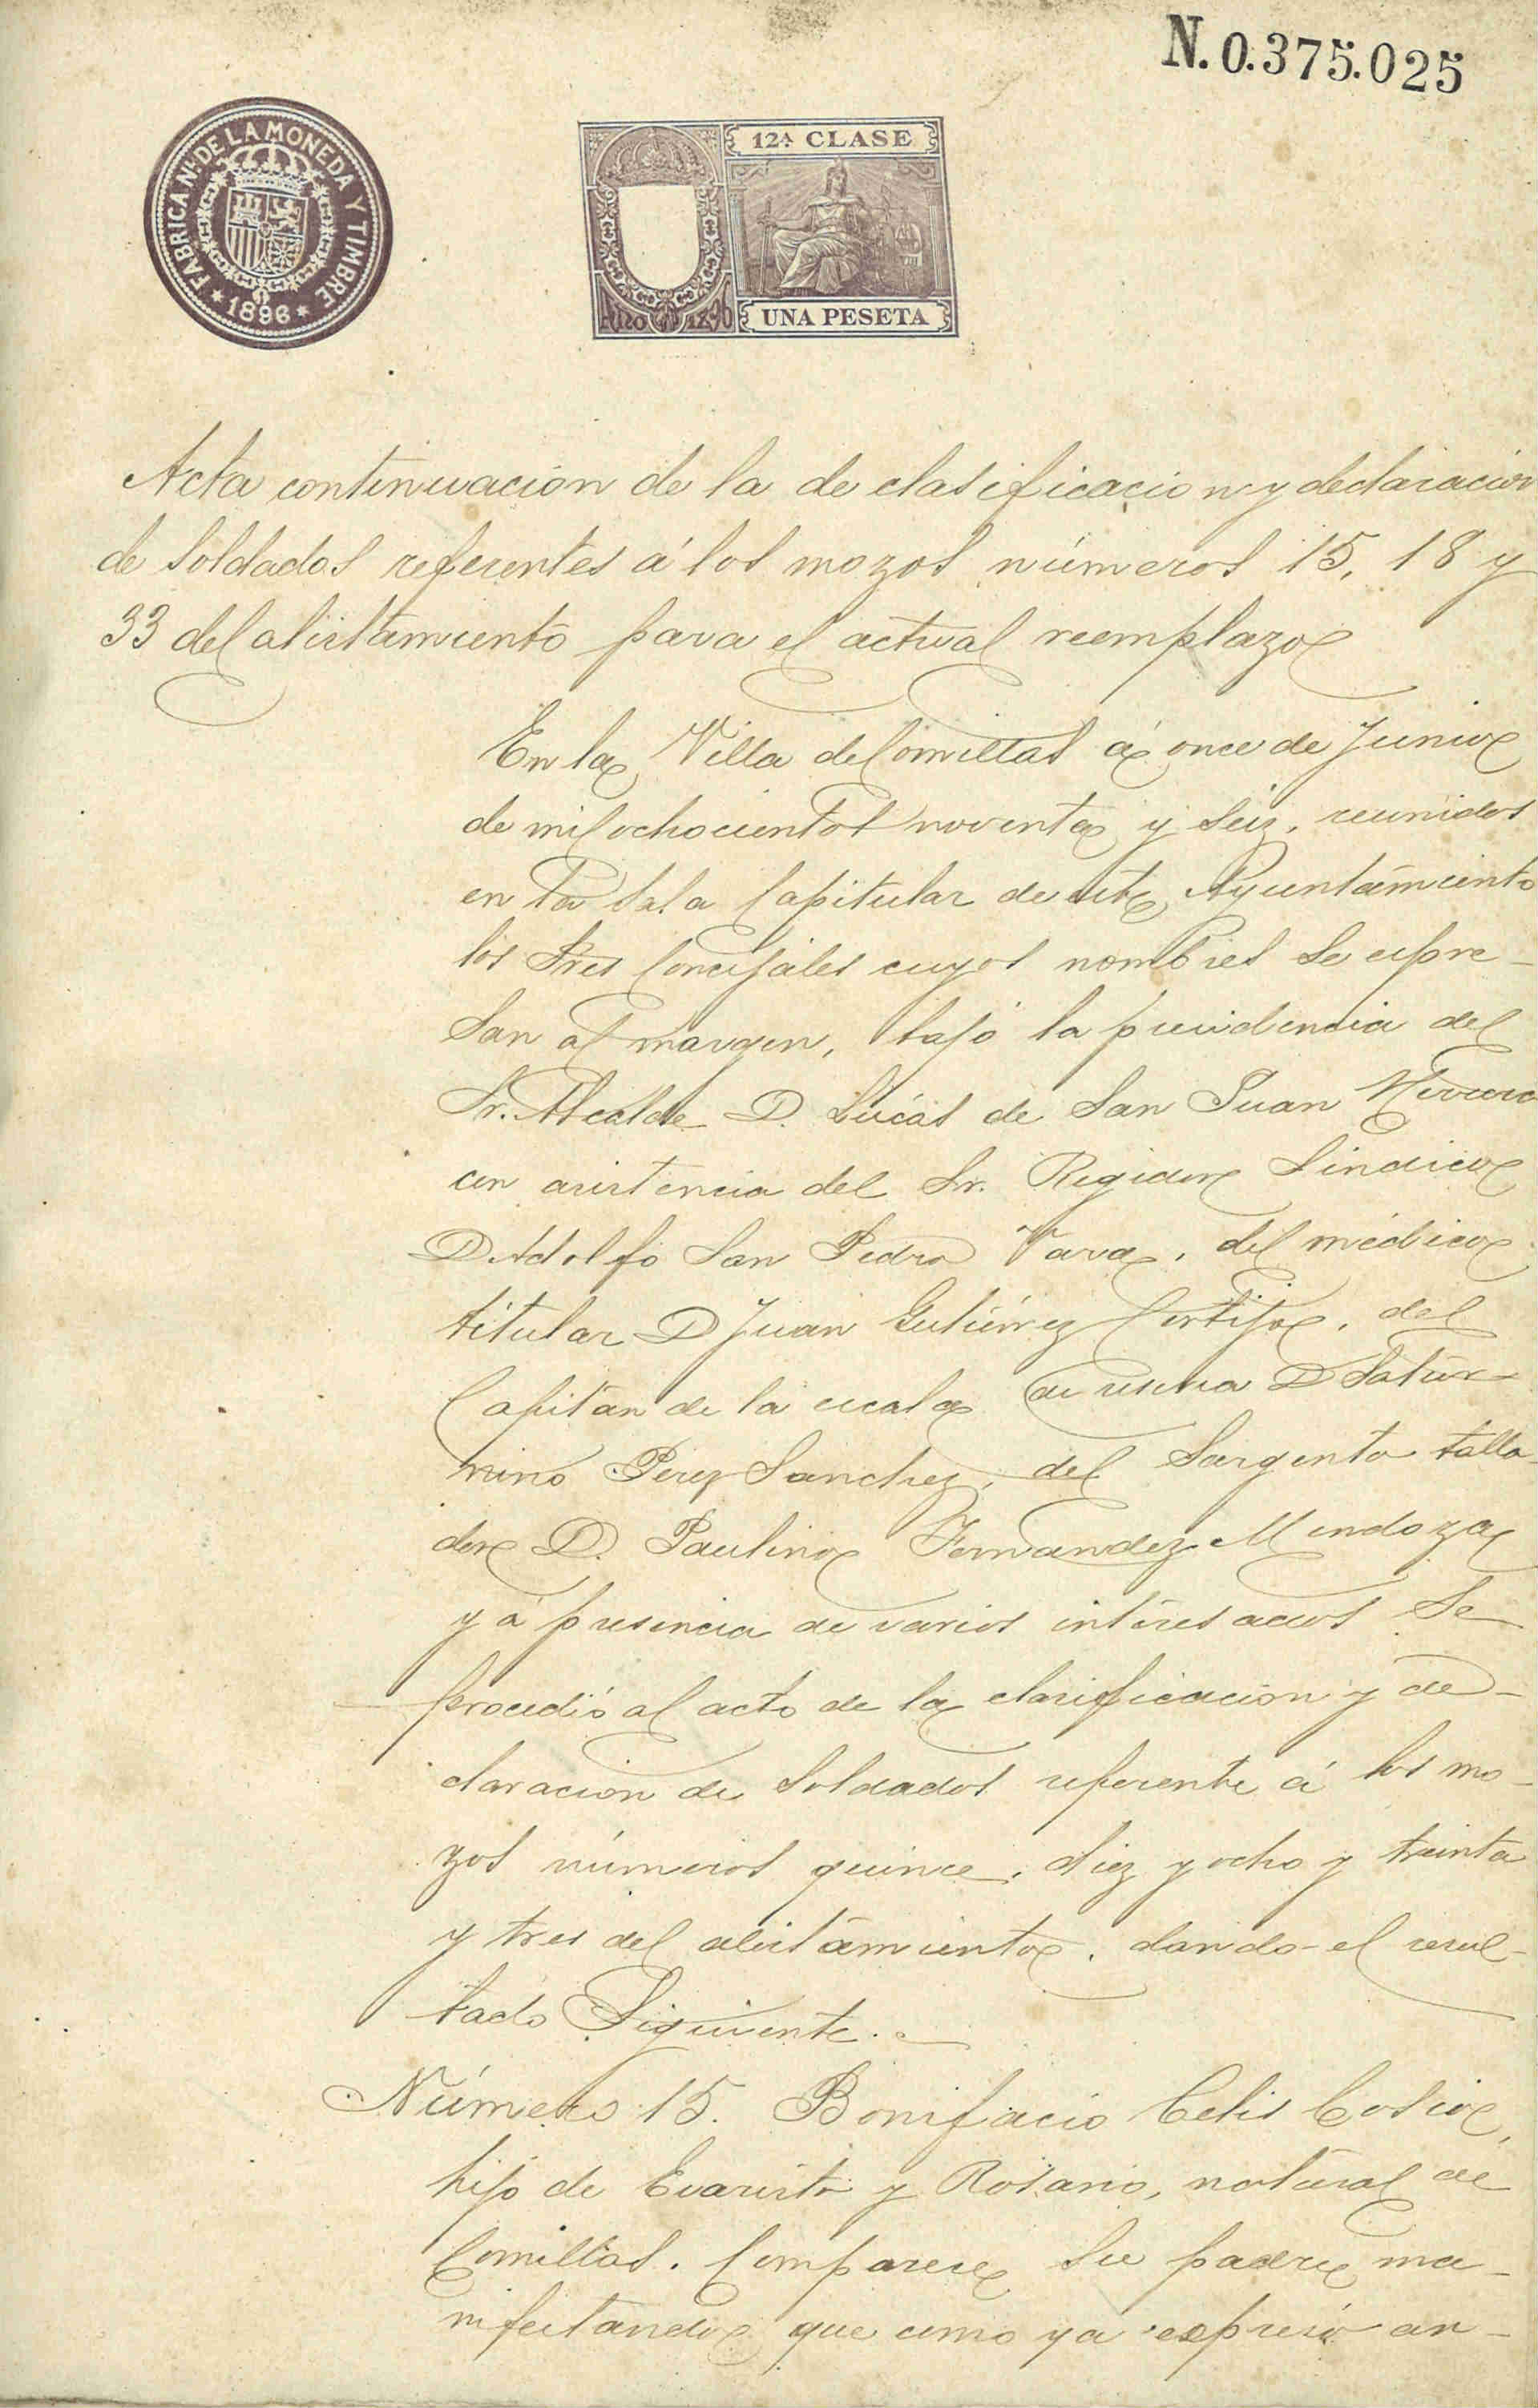 N. 0.375.025
FABRICA Nˡ DE LA MONEDA Y TIMBRE
* 1896 *
12ª CLASE
UNA PESETA
Acta continuacion de la de clasificacion y declaracion
de soldados referentes á los mozos números 15, 18 y
33 del alistamiento para el actual reemplazo
En la Villa de Comillas á once de Junio
de mil ochocientos noventa y seis, reunidos
en la Sala Capitular de este Ayuntamiento
los Sres Concejales cuyos nombres se espre-
san al margen, bajo la presidencia del
Sr. Alcalde D. Lúcas de San Juan Herrero
con asistencia del Sr. Regidor Síndico
D Adolfo San Pedro Vara, del médico
titular D Juan Gutiérrez Cortijo, del
Capitan de la escala de reserva D Satur-
nino Perez Sanchez, del Sargento talla-
dor D. Paulino Fernandez Mendoza
y á presencia de varios interesados se
procedió al acto de la clasificacion y de-
claracion de soldados referente á los mo-
zos números quince, diez y ocho y treinta
y tres del alistamiento, dando el resul-
tado Siguiente.
Número 15. Bonifacio Celis Cosio,
hijo de Evaristo y Rosario, natural de
Comillas. Comparece su padre ma-
nifestando que como ya espresó an-